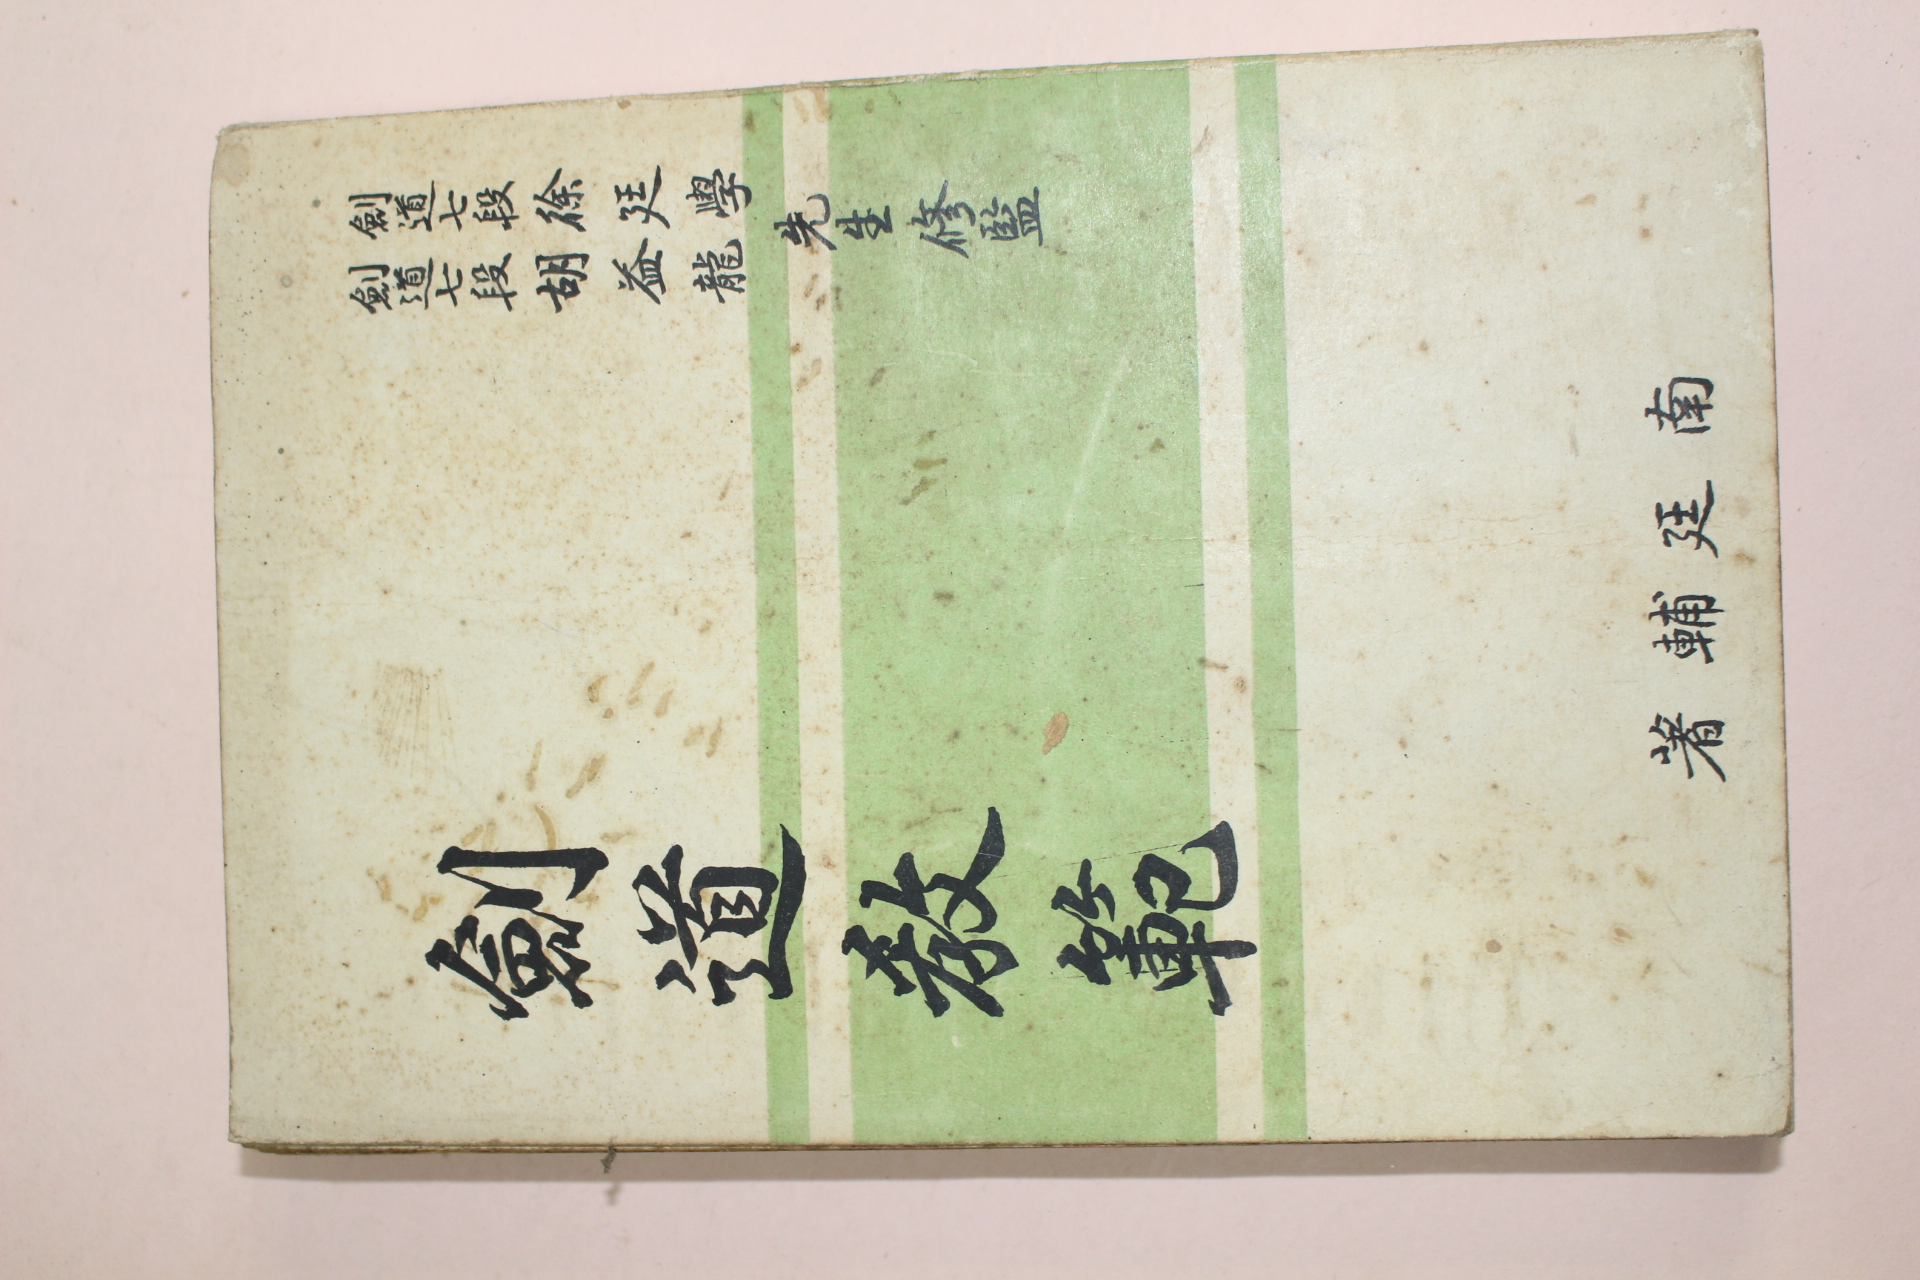 劍道七段 徐廷學
劍道七段 胡益龍
先生 修監
劍道敎範
南廷輔著